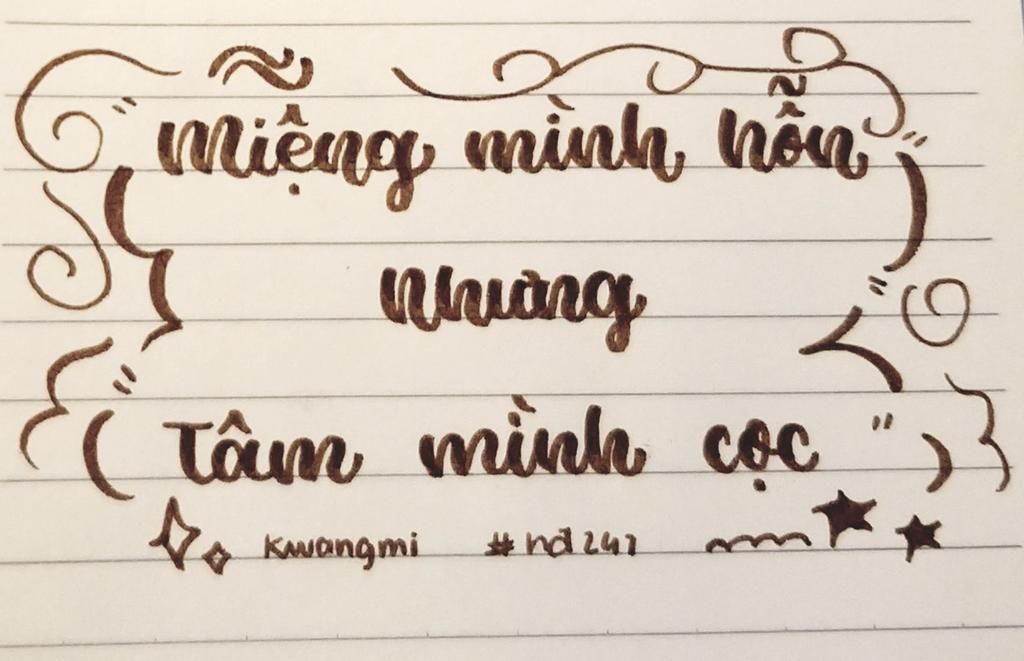 Miệng mình hỗn
Nhưng
Tâm mình cọc
Kwangmi #nđ247